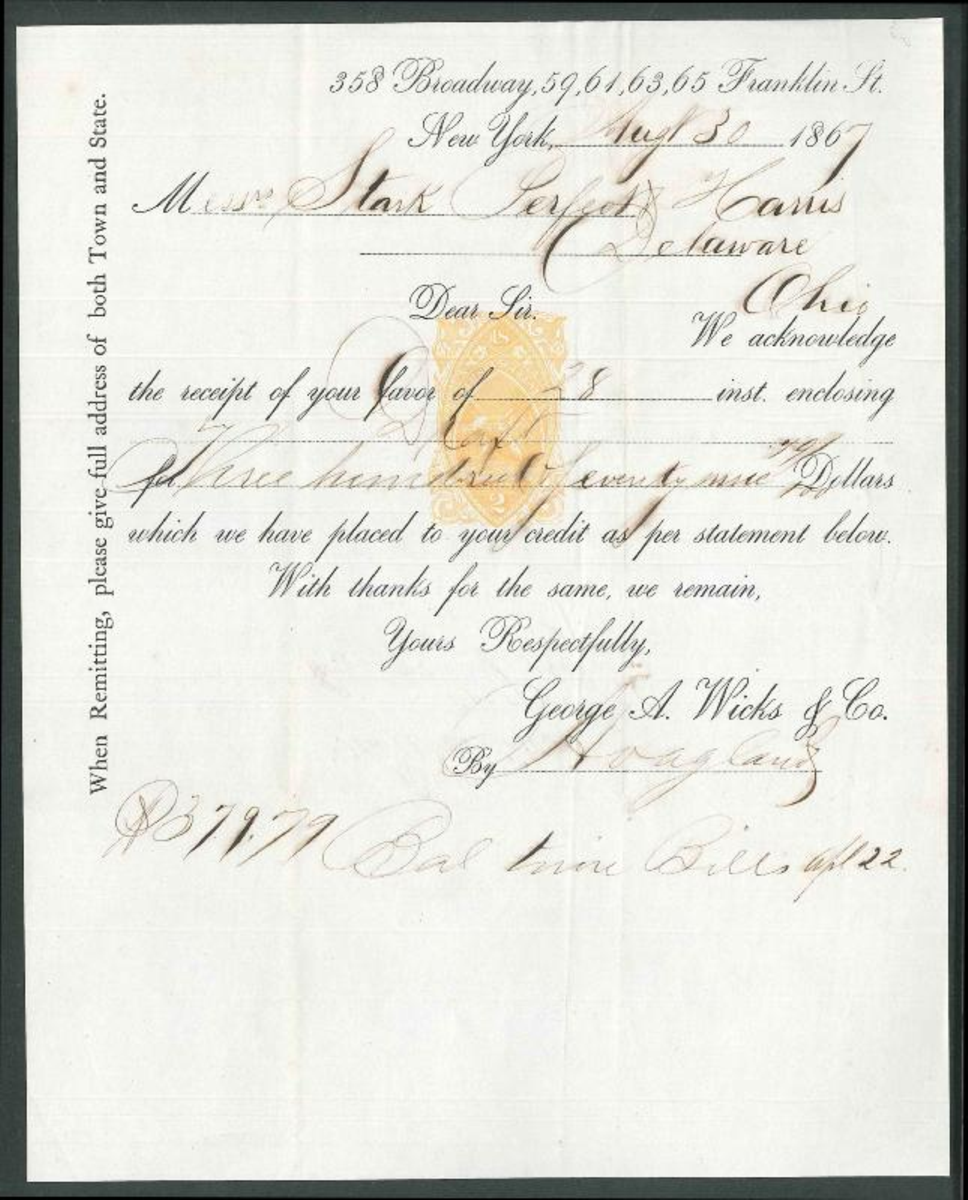 358 Broadway, 59, 61, 63, 65 Franklin St.
New York, Augt 30 1867
Messrs Stark Perfect & Harris
Delaware
Ohio
Dear Sir.
We acknowledge
the receipt of your favor of 28 inst. enclosing
Draft
for Three hundred Seventy nine 79/100 Dollars
which we have placed to your credit as per statement below.
With thanks for the same, we remain,
Yours Respectfully,
George A. Wicks & Co.
By Hoagland
$379.79 Bal Bills apl 22.
When Remitting, please give full address of both Town and State.